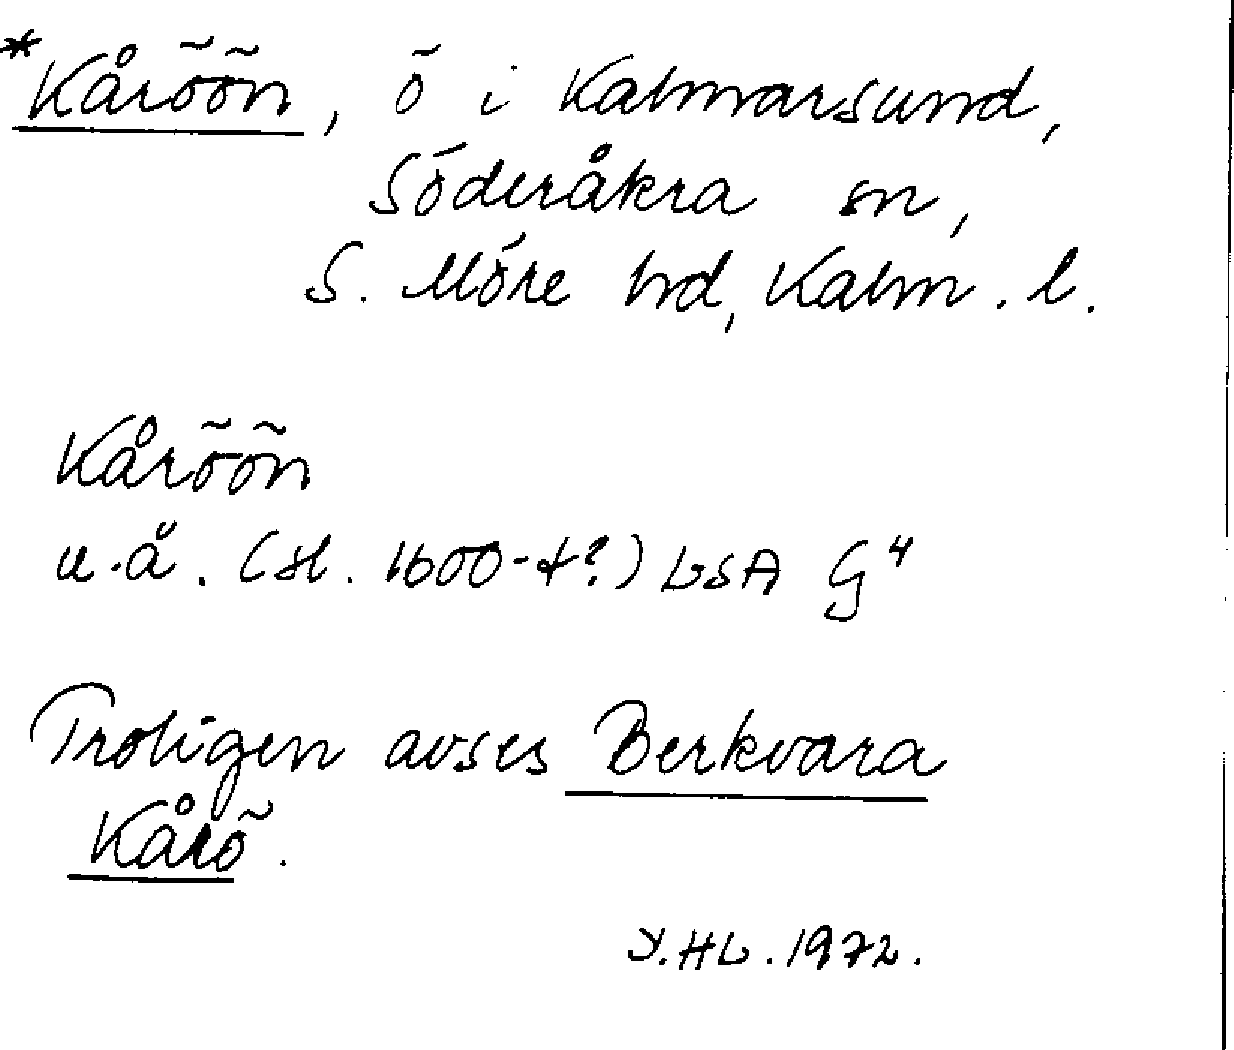 *Kåröön, ö i Kalmarsund,
Söderåkra sn,
S. Möre hd, Kalm. l.
Kåröön
u.å. (sl. 1600-t?) LSA G4
Troligen avses Bergkvara
Kårö.
Y.HL. 1972.